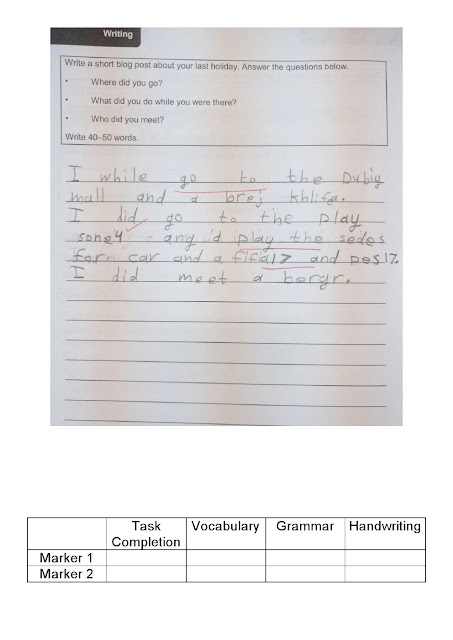 Writing
Write a short blog post about your last holiday. Answer the questions below.
• Where did you go?
• What did you do while you were there?
• Who did you meet?
Write 40–50 words.
I while go to the Dubiy
mall and a brej khlifa.
I did go to the play
sone4 and d play the sedos
form car and a fifa17 and pes17.
I did meet a borgr.
Task Completion Vocabulary Grammar Handwriting
Marker 1
Marker 2